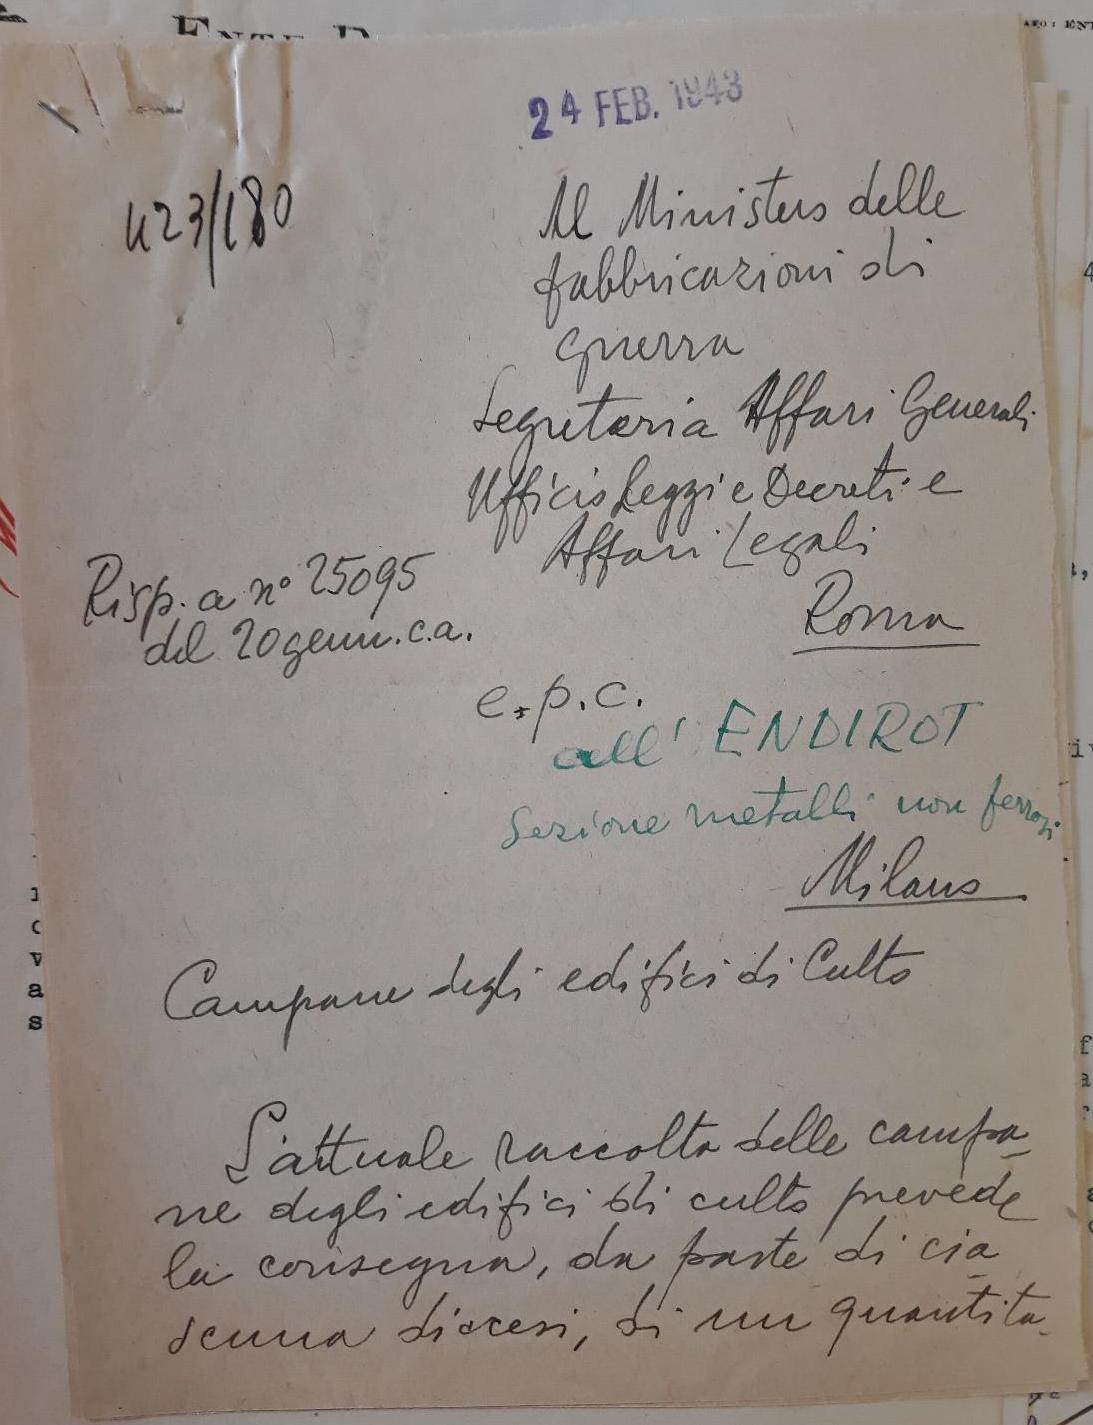 24 FEB. 1943
423/180
Al Ministero delle
fabbricazioni di
guerra
Segreteria Affari Generali
Ufficio Leggi e Decreti e
Affari Legali
Roma
Risp. a n° 25095
del 20 genn. c.a.
e. p. c.
all' ENDIROT
Sezione metalli non ferrosi
Milano
Campane degli edifici di Culto
L'attuale raccolta delle campa-
ne degli edifici di culto prevede
la consegna, da parte di cia
scuna diocesi, di un quantita-